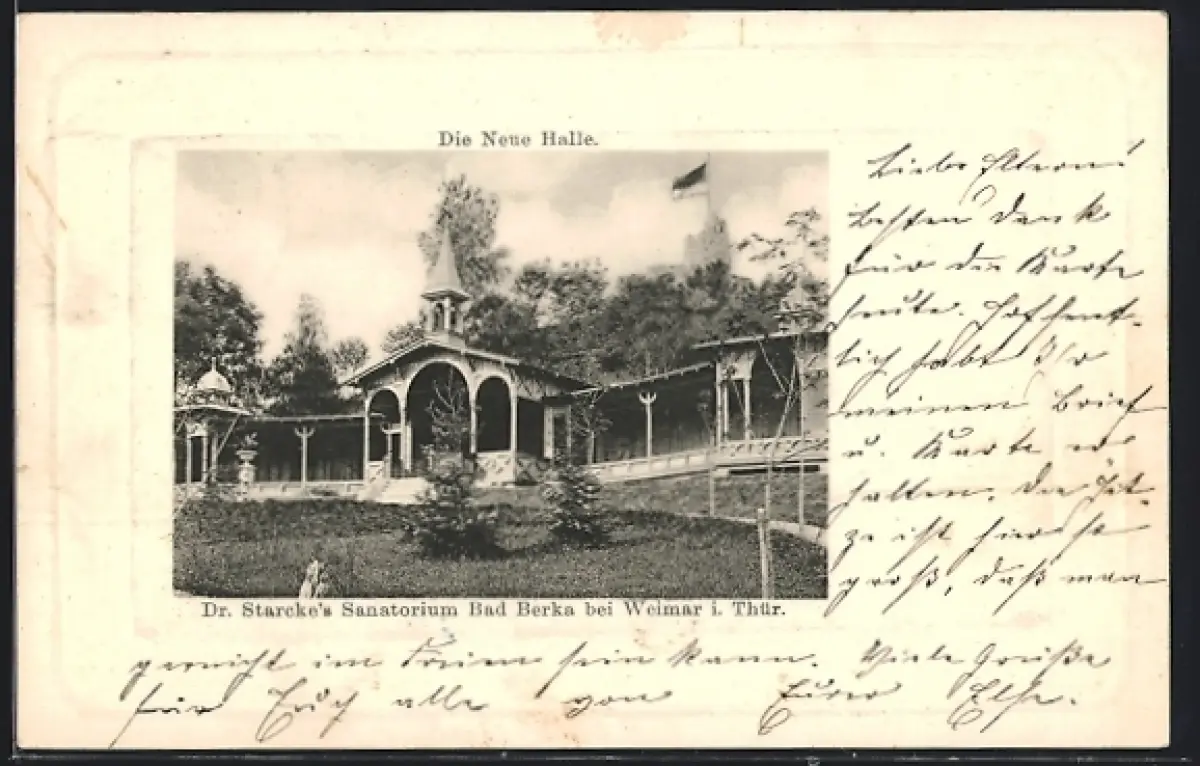 Die Neue Halle.
Liebe Eltern!
Besten Dank
für die Karte
heute. Hoffent-
lich habt Ihr
meinen Brief
u. Karte er-
halten. Die Hit-
ze ist hier so
groß, daß man
garnicht im Freien sein kann. Viele Grüße
für Euch alle von Eurer Else.
Dr. Starcke's Sanatorium Bad Berka bei Weimar i. Thür.